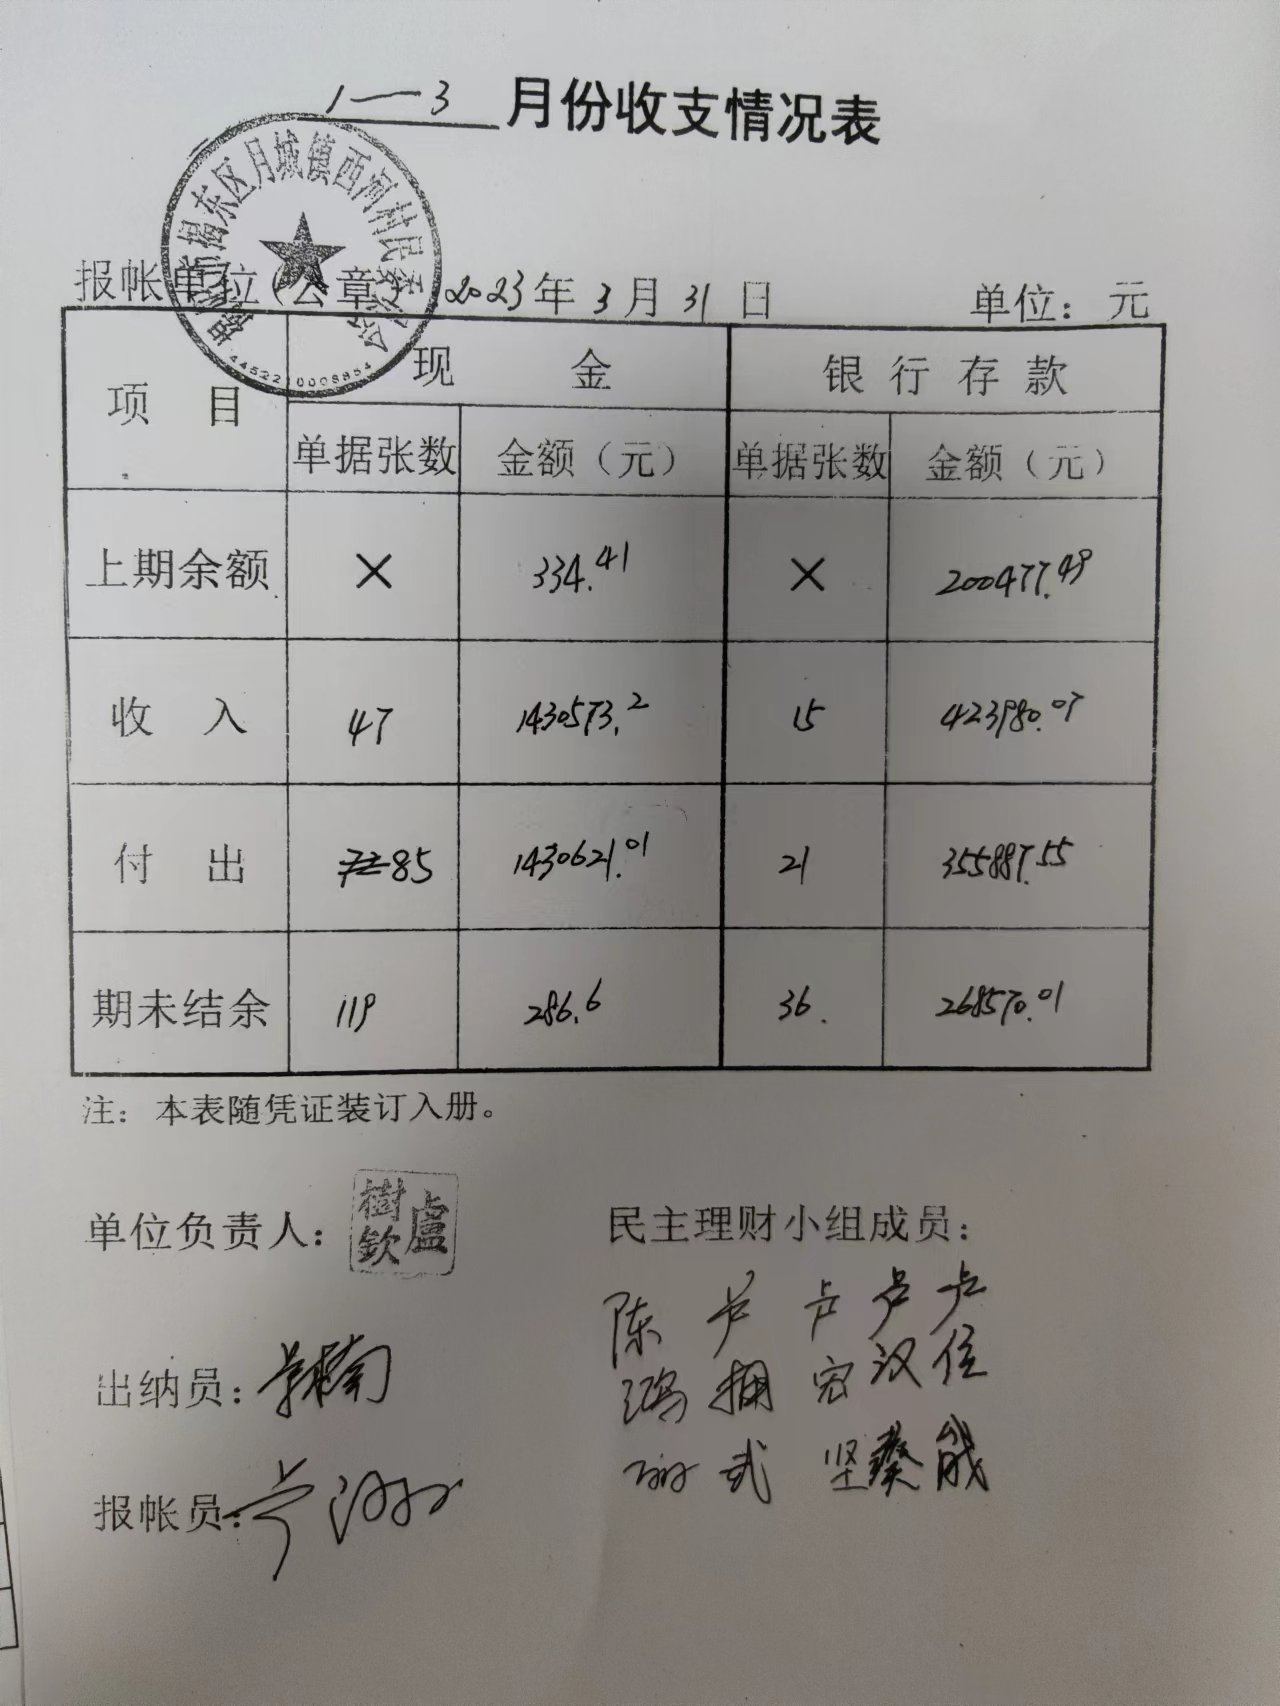 1—3 月份收支情况表
揭东区月城镇西河村民委员会
4452210008854
报帐单位(公章) 2023年3月31日 单位：元
项 目 现 金 银行存款
单据张数 金额（元） 单据张数 金额（元）
上期余额 × 334.41 × 200477.49
收 入 47 1430573.2 15 423980.07
付 出 72 85 1430621.01 21 355887.55
期未结余 119 286.6 36. 268570.01
注：本表随凭证装订入册。
单位负责人： 盧樹欽 民主理财小组成员：
陈 卢 卢 卢 卢
鸿 拥 宏 汉 位
出纳员：
武 坚 葵 能
报帐员：